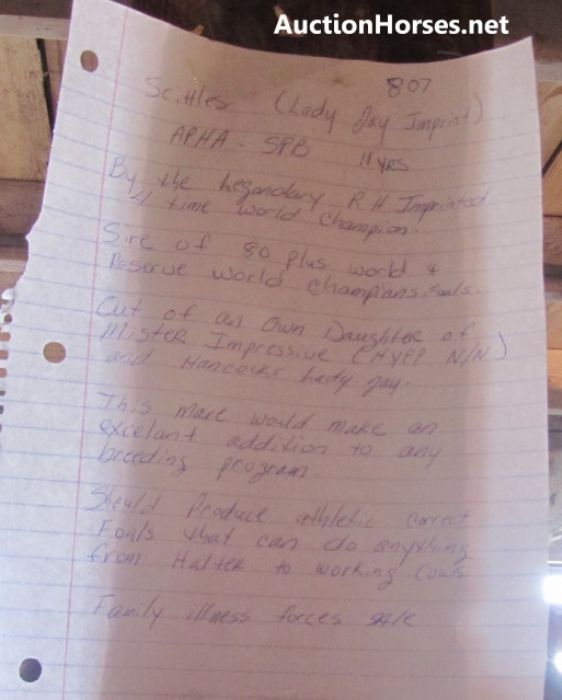 AuctionHorses.net
807
Scittles (Lady Jay Imprint)
APHA - SPB 11 YRS
By the Legendary R H Imprinted
4 time world Champion.
Sire of 80 Plus world &
Reserve world Champians Foals.
Out of an Own Daughter of
Mister Impressive (HYPP N/N)
and Hancocks Lady Jay.
This mare would make an
excelant addition to any
breeding program.
Should Produce athletic correct
Foals that can do anything
from Halter to working cows.
Family illness forces sale.